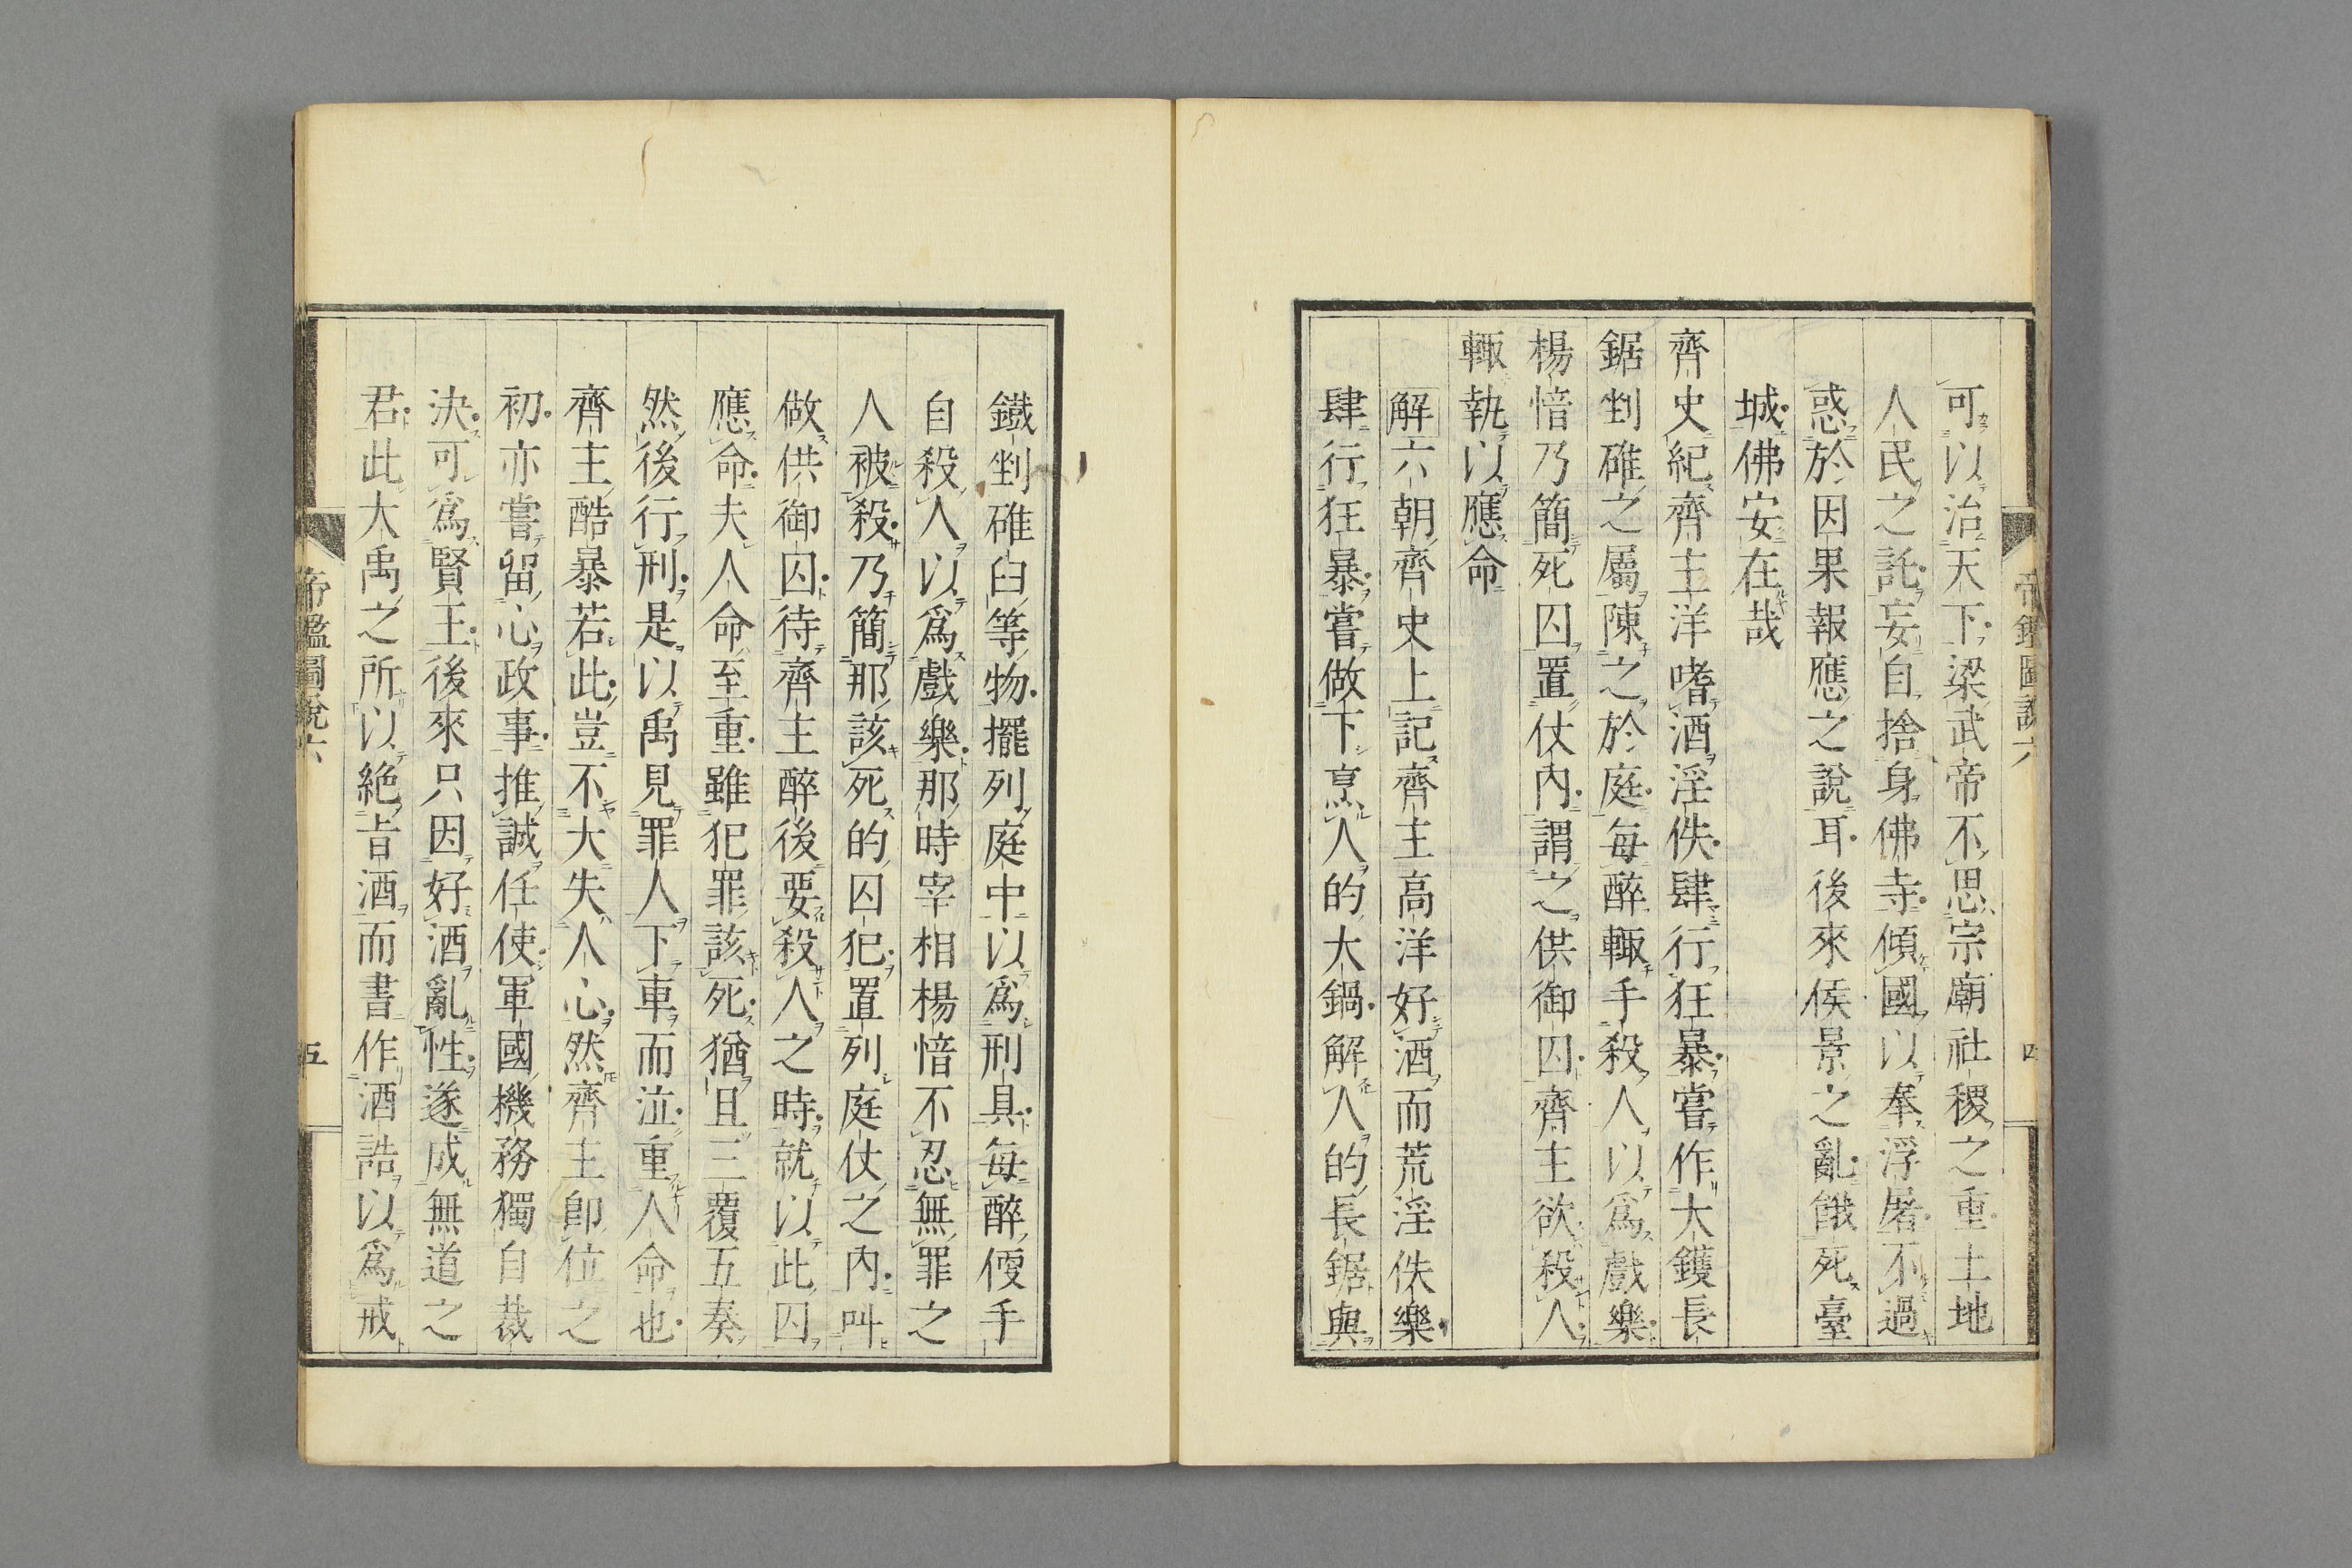 帝鑑圖說六
四
可以治天下梁武帝不思宗廟社稷之重土地
人民之託妄自捨身佛寺傾國以奉浮屠不過
惑於因果報應之說耳後來侯景之亂餓死臺
城佛安在哉
齊史紀齊主洋嗜酒淫佚肆行狂暴嘗作大鑊長
鋸剉碓之屬陳之於庭每醉輒手殺人以爲戲樂
楊愔乃簡死囚置仗內謂之供御囚齊主欲殺人
輒執以應命
解六朝齊史上記齊主高洋好酒而荒淫佚樂
肆行狂暴嘗做下烹人的大鍋解人的長鋸與
鐵剉碓臼等物擺列庭中以爲刑具每醉便手
自殺人以爲戲樂那時宰相楊愔不忍無罪之
人被殺乃簡那該死的囚犯置列庭仗之內叫
做供御囚待齊主醉後要殺人之時就以此囚
應命夫人命至重雖犯罪該死猶且三覆五奏
然後行刑是以禹見罪人下車而泣重人命也
齊主酷暴若此豈不大失人心然齊主卽位之
初亦嘗留心政事推誠任使軍國機務獨自裁
決可爲賢主後來只因好酒亂性遂成無道之
君此大禹之所以絶旨酒而書作酒誥以爲戒
帝鑑圖說六
五